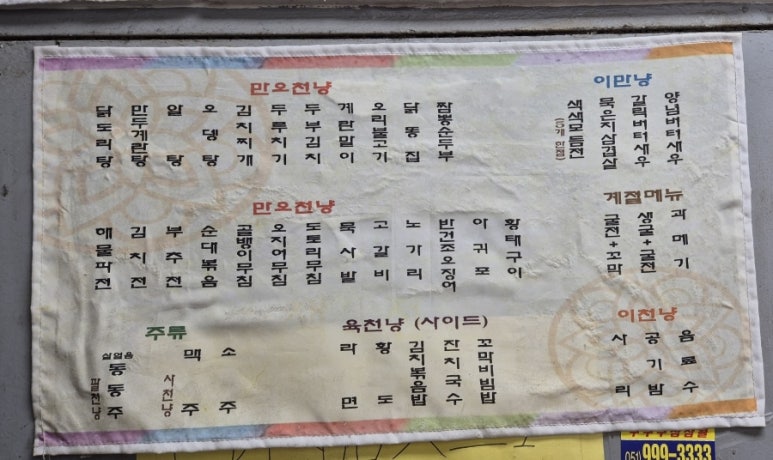 만오천냥
닭도리탕
만두계란탕
알탕
오뎅탕
김치찌개
두루치기
두부김치
계란말이
오리불고기
닭똥집
짬뽕순두부
이만냥
색색모듬전
묵은지삼겹살
갈릭버터새우
양념버터새우
만오천냥
해물파전
김치전
부추전
순대볶음
골뱅이무침
오징어무침
도토리무침
묵사발
고갈비
노가리
반건조오징어
아귀포
황태구이
계절메뉴
굴전+꼬막
생굴+굴전
과메기
주류
동동주
팔천냥
맥주
사천냥
소주
육천냥 (사이드)
라면
황도
김치볶음밥
잔치국수
꼬막비빔밥
이천냥
사리
공기밥
음료수
051) 999-3333